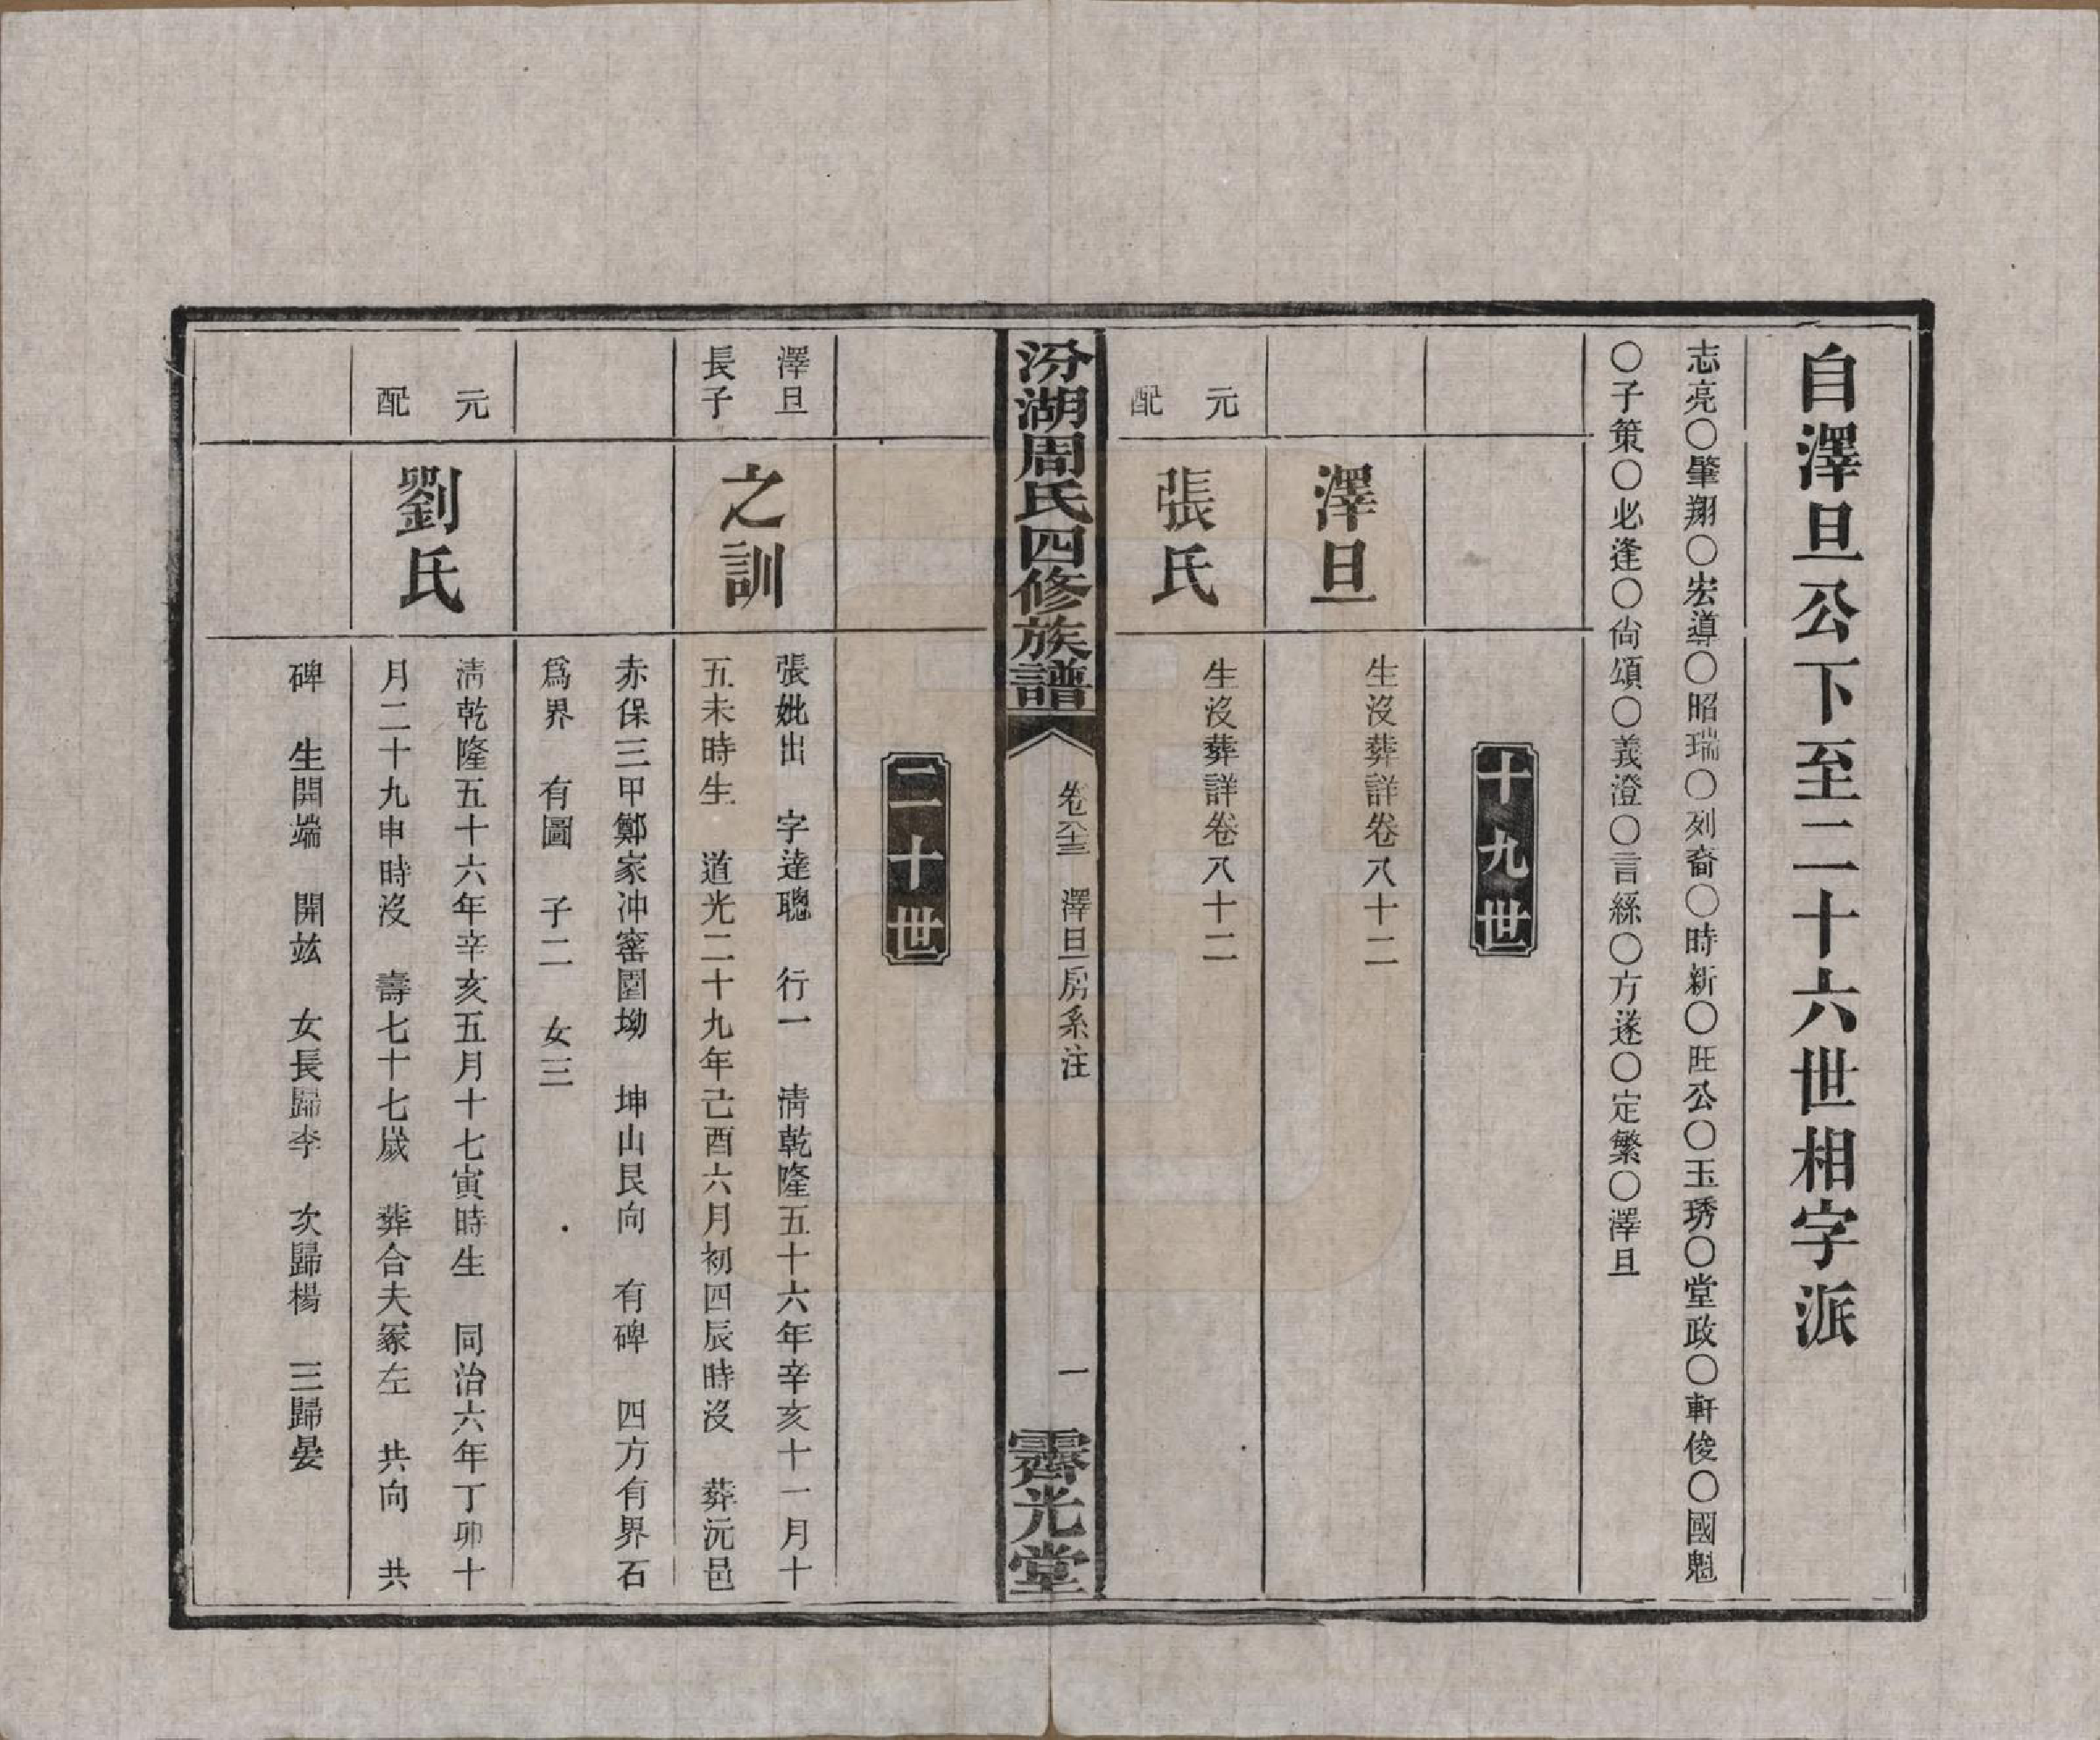 自澤旦公下至二十六世相字派
志亮〇肇翔〇宏導〇昭瑞〇列裔〇時新〇旺公〇玉琇〇堂政〇軒俊〇國魁
〇子策〇必逢〇尙頌〇義澄〇言綵〇方遂〇定繁〇澤旦
十九世
澤旦
生沒葬詳卷八十二
元配
張氏
生沒葬詳卷八十二
汾湖周氏四修族譜
卷八十三
澤旦房系注
一
霽光堂
二十世
澤旦長子
之訓
張妣出 字達聰 行一 淸乾隆五十六年辛亥十一月十
五未時生 道光二十九年己酉六月初四辰時沒 葬沅邑
赤保三甲鄭家冲窰園坳 坤山艮向 有碑 四方有界石
爲界 有圖 子二 女三
元配
劉氏
淸乾隆五十六年辛亥五月十七寅時生 同治六年丁卯十
月二十九申時沒 壽七十七歲 葬合夫冢左 共向 共
碑 生開端 開玆 女長歸李 次歸楊 三歸晏